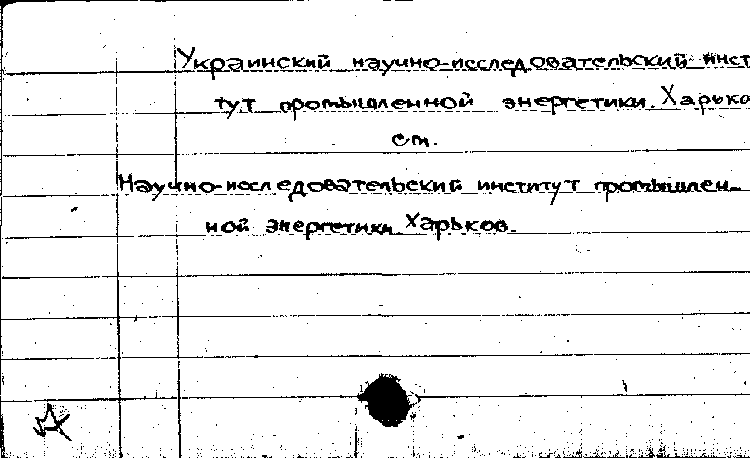 Украинский научно-исследовательский инст
тут промышленной энергетики. Харько
см.
Научно-исследовательский институт промышлен-
ной энергетики. Харьков.